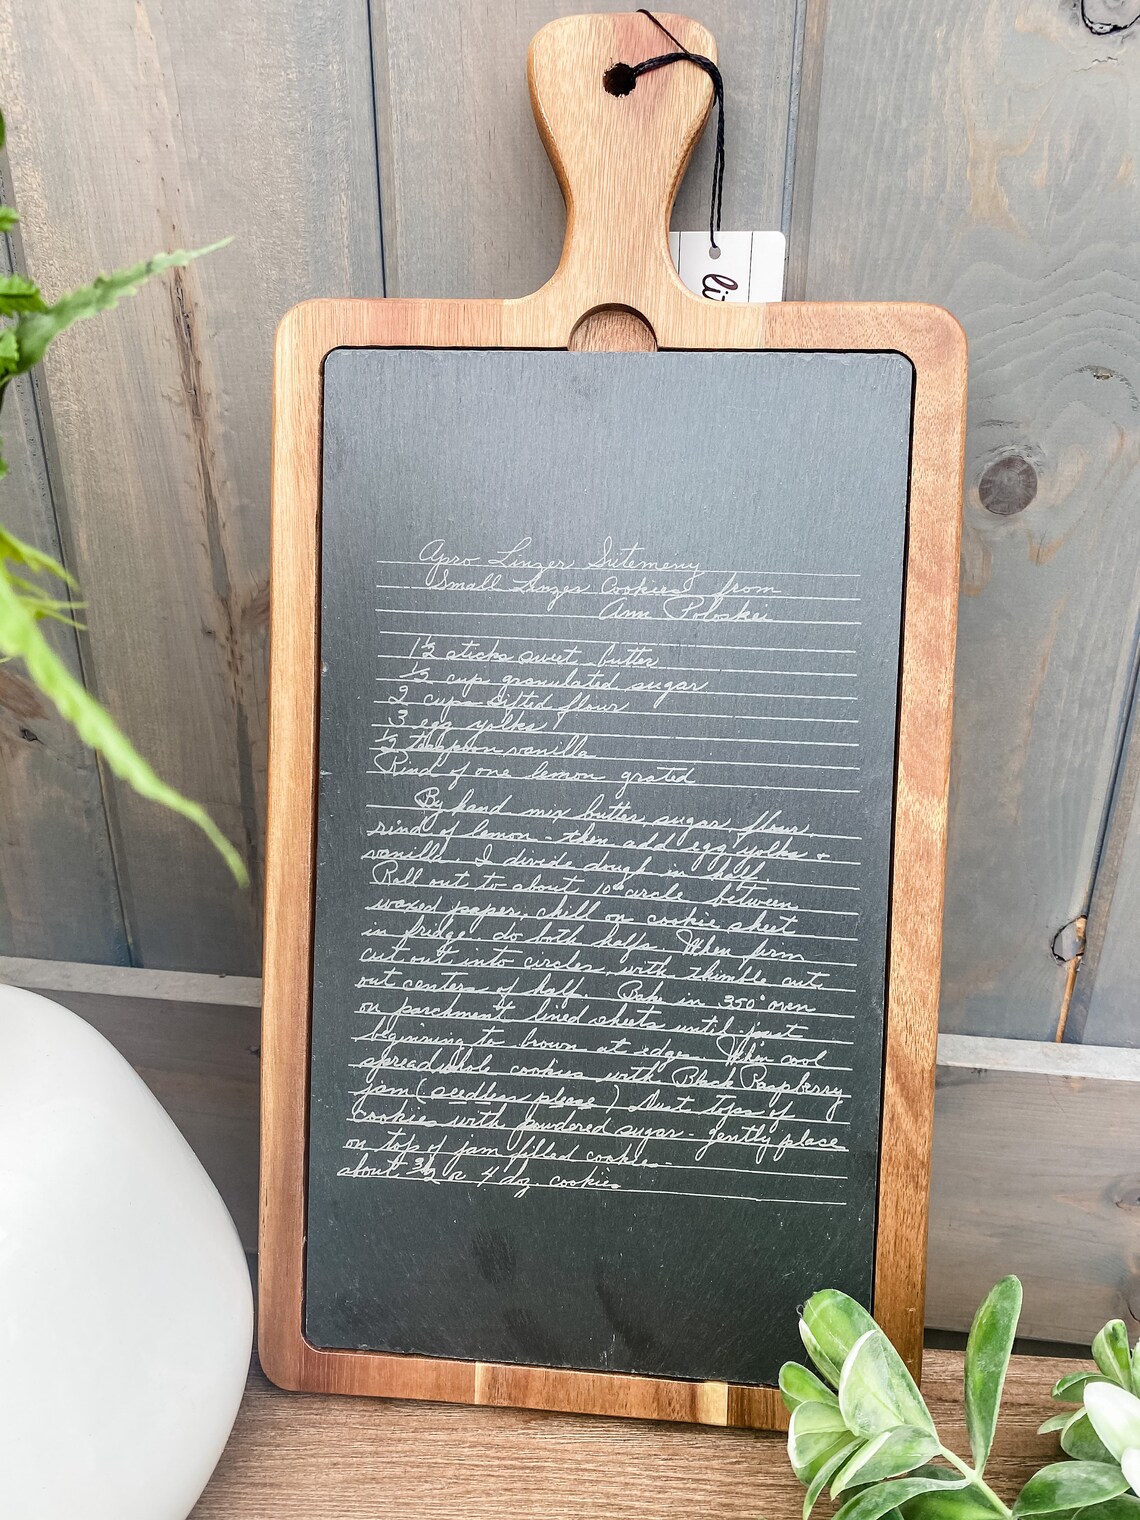 Apro Linzer Sutemeny
Small Linzer Cookies from
Ann Poloskei
1½ sticks sweet butter
½ cup granulated sugar
2 cups sifted flour
3 egg yolks
½ teaspoon vanilla
Rind of one lemon grated
By hand mix butter, sugar, flour,
rind of lemon - then add egg yolks +
vanilla. I divide dough in half.
Roll out to about 10" circle between
waxed paper, chill on cookie sheet
in fridge. do both halfs. When firm
cut out into circles, with thimble cut
out centers of half. Bake in 350° oven
on parchment lined sheets until just
beginning to brown at edges. When cool
spread whole cookies with Black Raspberry
jam (seedless please) Dust tops of
cookies with powdered sugar - gently place
on top of jam filled cookies -
about 3½ or 4 doz. cookies